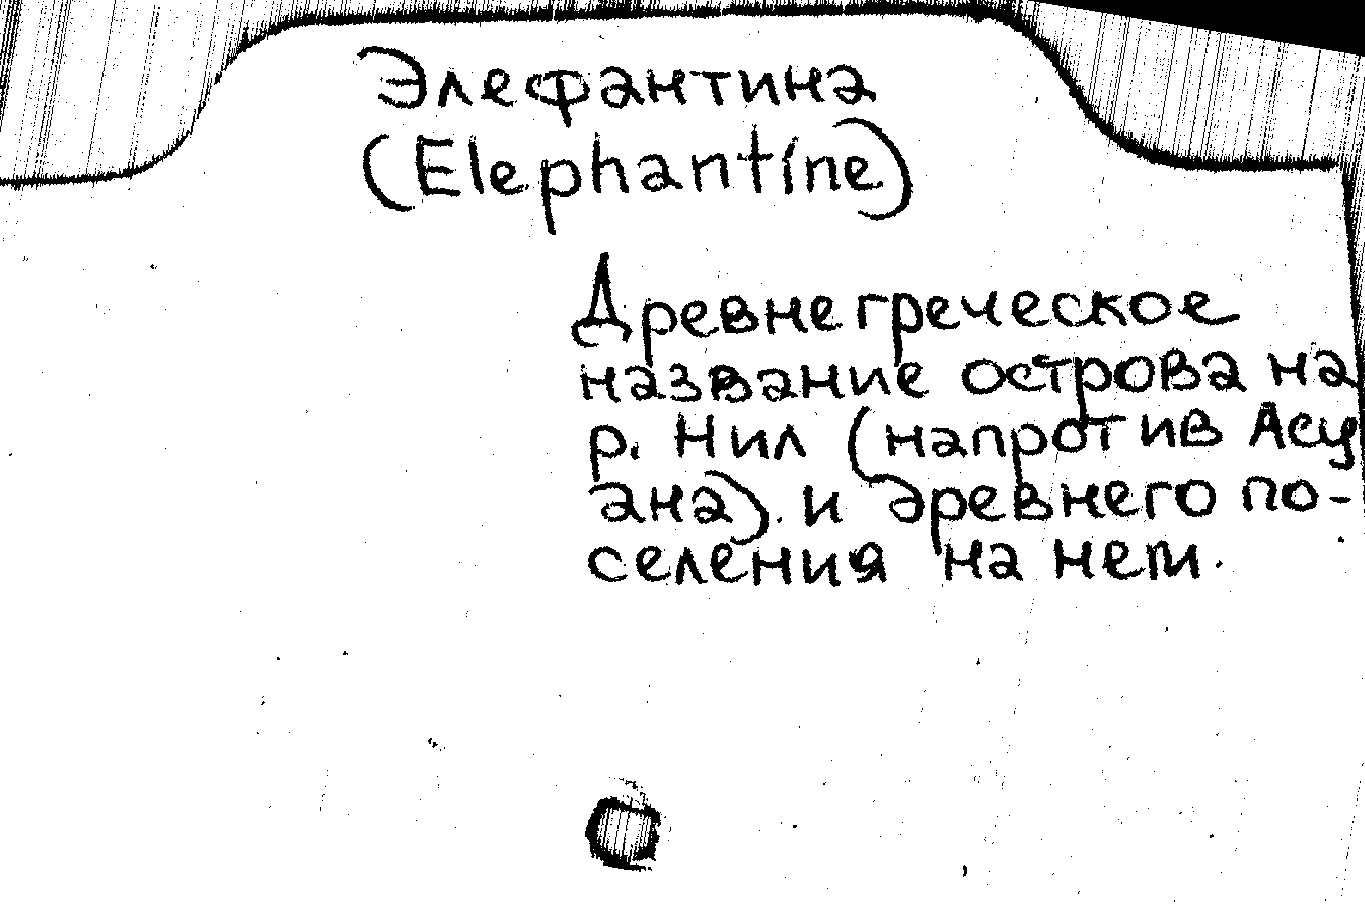 Элефантина
(Elephantine)
Древнегреческое
название острова на
р. Нил (напротив Асу
ана) и древнего по-
селения на нем.